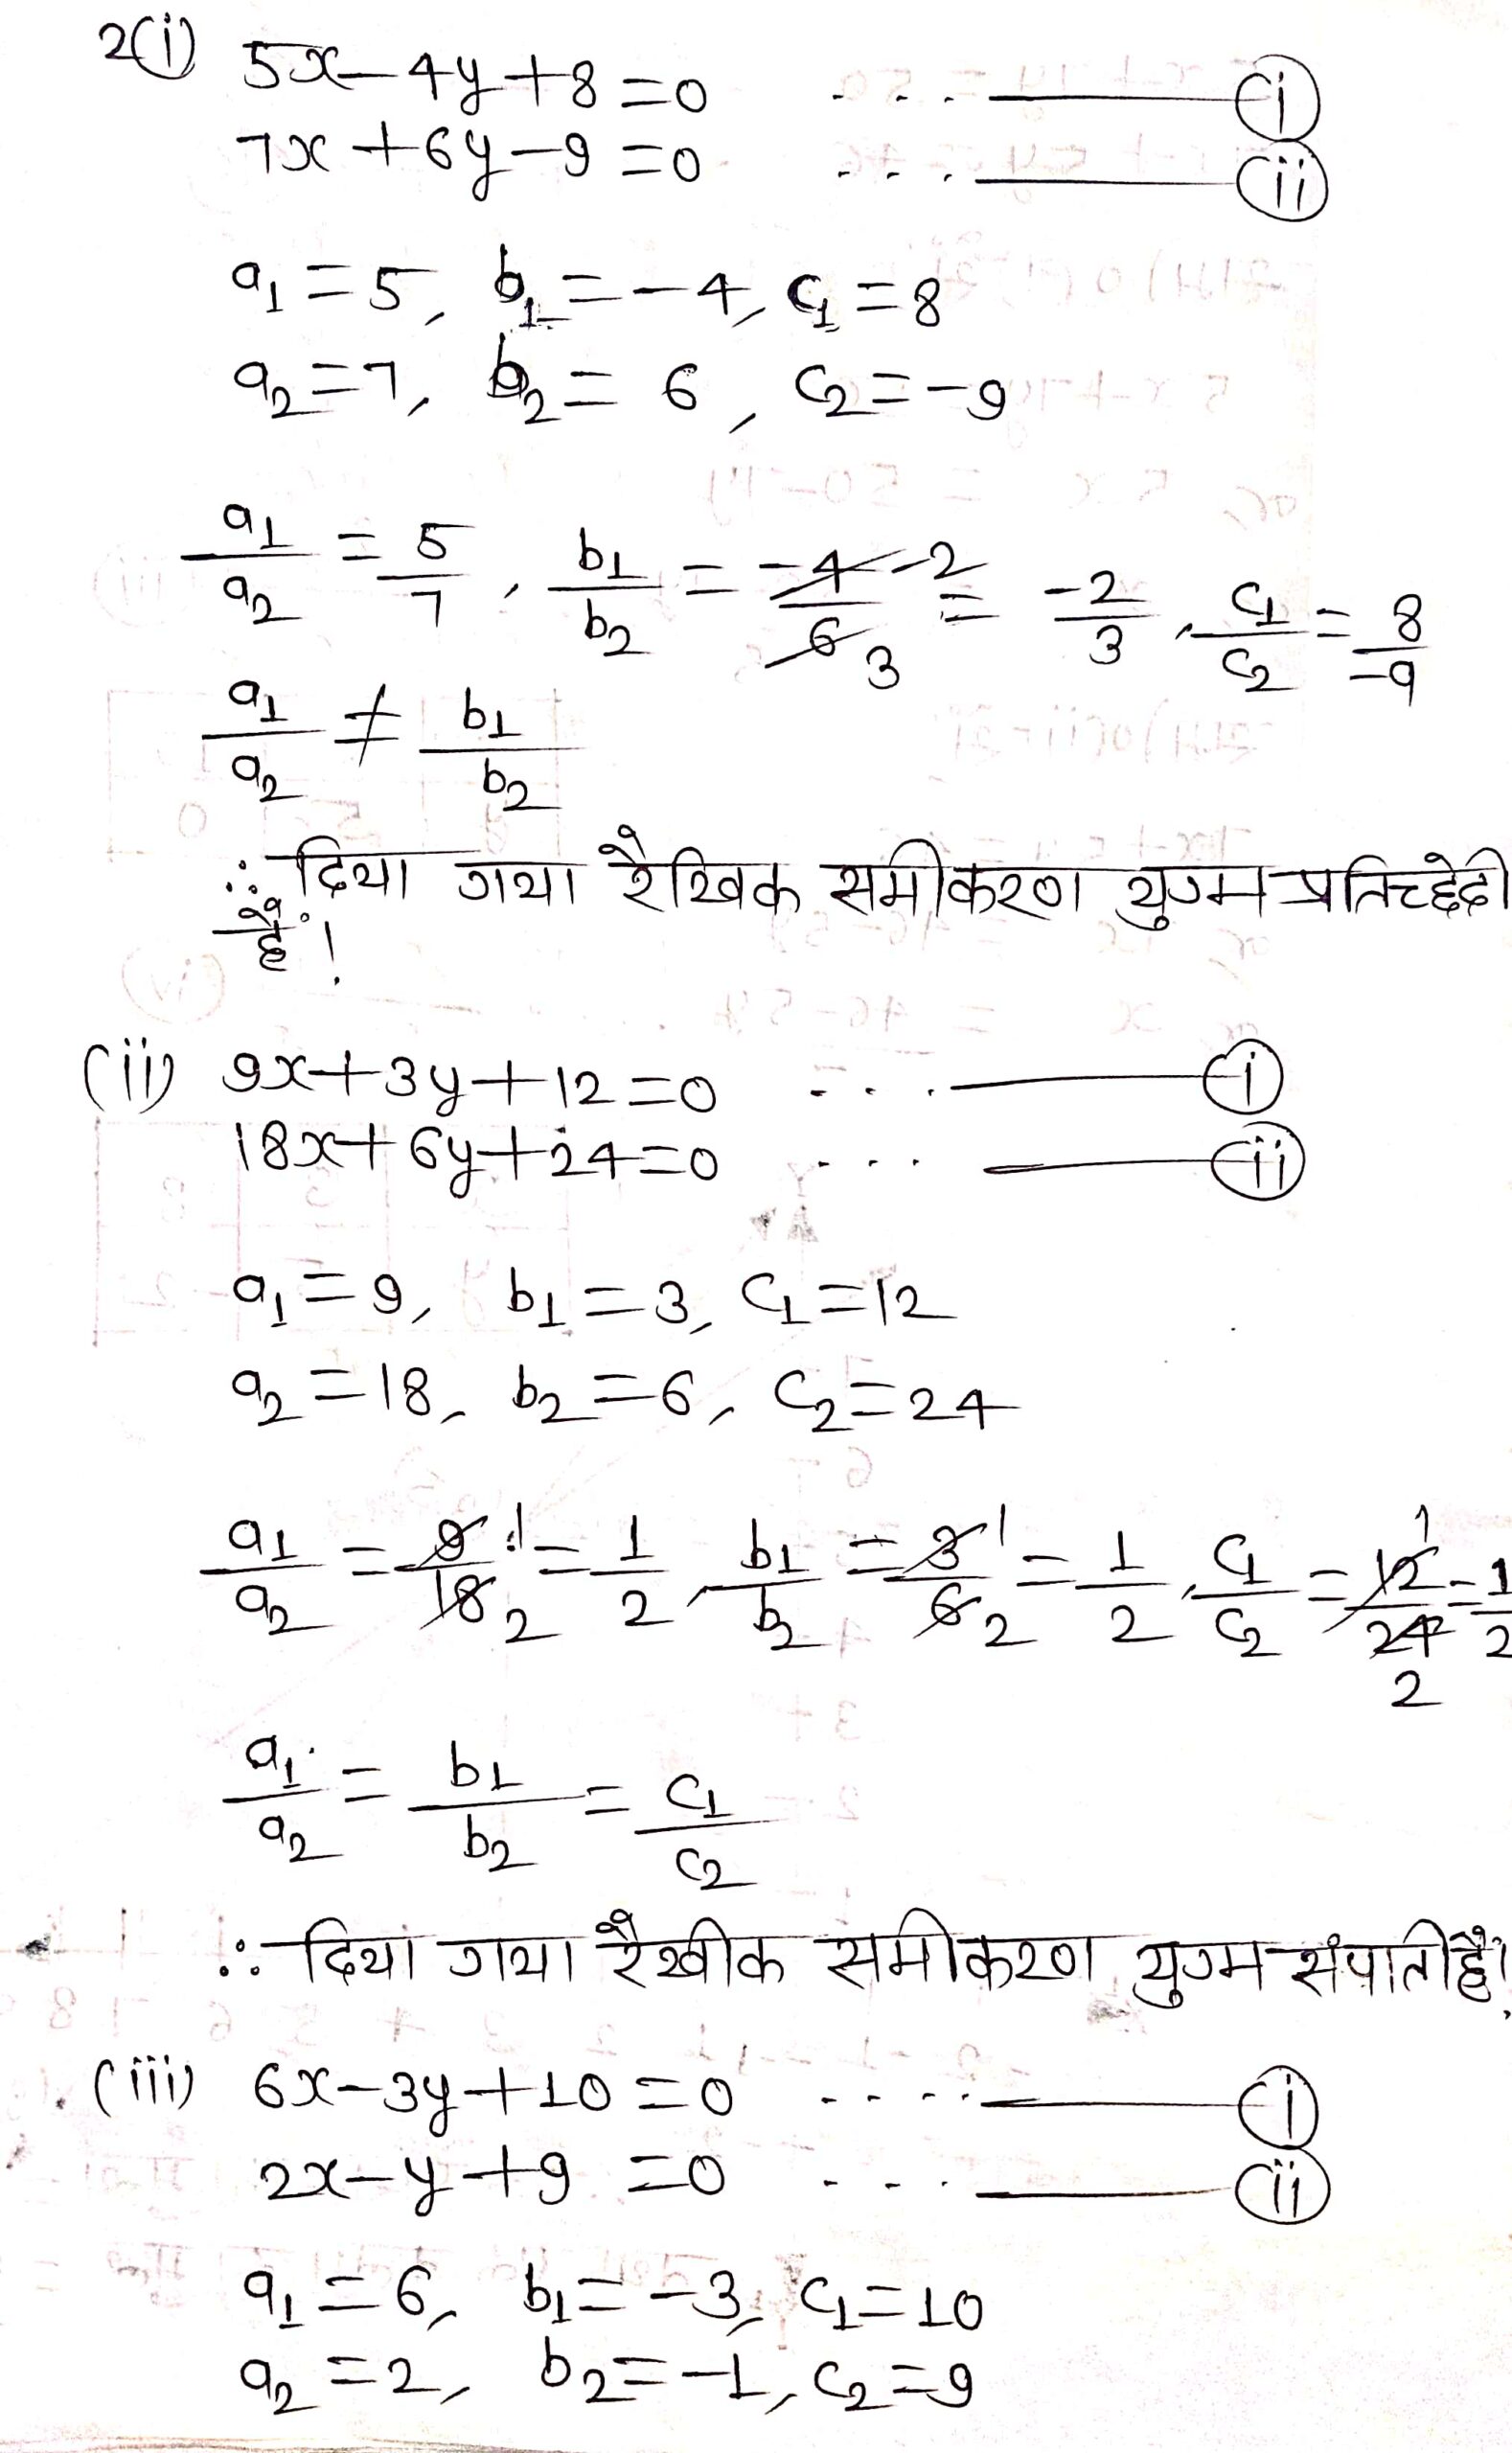 2(i) 5x-4y+8=0 ... (i)
7x+6y-9=0 ... (ii)
a₁=5, b₁=-4, c₁=8
a₂=7, b₂=6, c₂=-9
a₁/a₂ = 5/7, b₁/b₂ = -4/6 -2/3 = -2/3, c₁/c₂ = 8/-9
a₁/a₂ ≠ b₁/b₂
∴ दिया गया रैखिक समीकरण युग्म प्रतिच्छेदी
हैं।
(ii) 9x+3y+12=0 ... (i)
18x+6y+24=0 ... (ii)
a₁=9, b₁=3, c₁=12
a₂=18, b₂=6, c₂=24
a₁/a₂ = 9/18 1/2 = 1/2, b₁/b₂ = 3/6 1/2 = 1/2, c₁/c₂ = 12/24 1/2 = 1/2
a₁/a₂ = b₁/b₂ = c₁/c₂
∴ दिया गया रैखीक समीकरण युग्म संपाती हैं।
(iii) 6x-3y+10=0 .... (i)
2x-y+9=0 ... (ii)
a₁=6, b₁=-3, c₁=10
a₂=2, b₂=-1, c₂=9